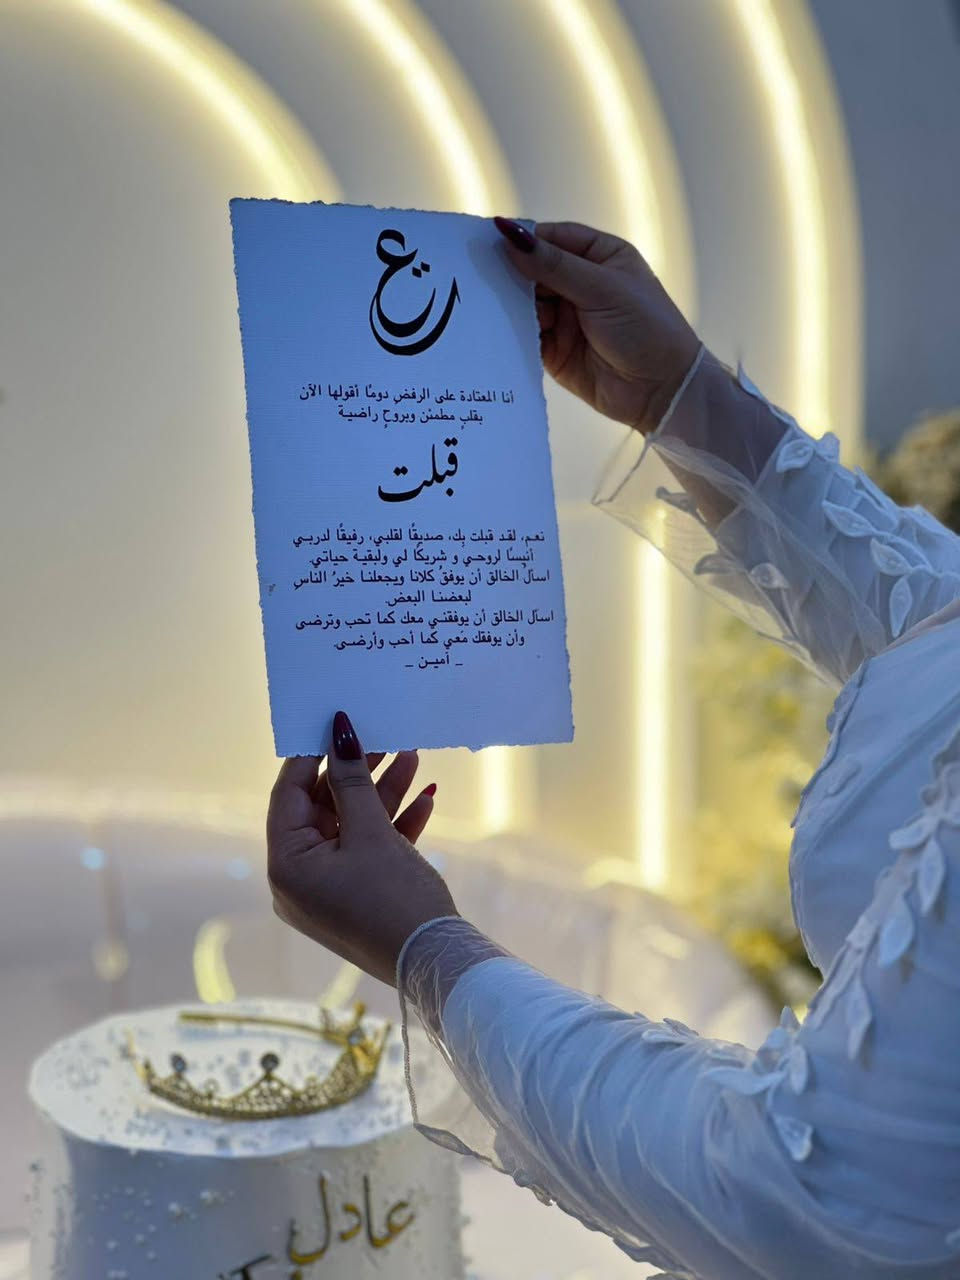 أنا المعتادة على الرفضِ دومًا أقولها الآن
بقلبٍ مطمئن وبروحٍ راضية
قبلت
نعم، لقد قبلت بِك، صديقًا لقلبي، رفيقًا لدربي
أنيسًا لروحي و شريكًا لي ولبقية حياتي.
اسأل الخالق أن يوفق كلانا ويجعلنا خيرُ الناسِ
لبعضنا البعض.
اسأل الخالق أن يوفقني معك كما تحب وترضى
وأن يوفقك مَعي كما أحب وأرضى.
_ آمين _
عادل